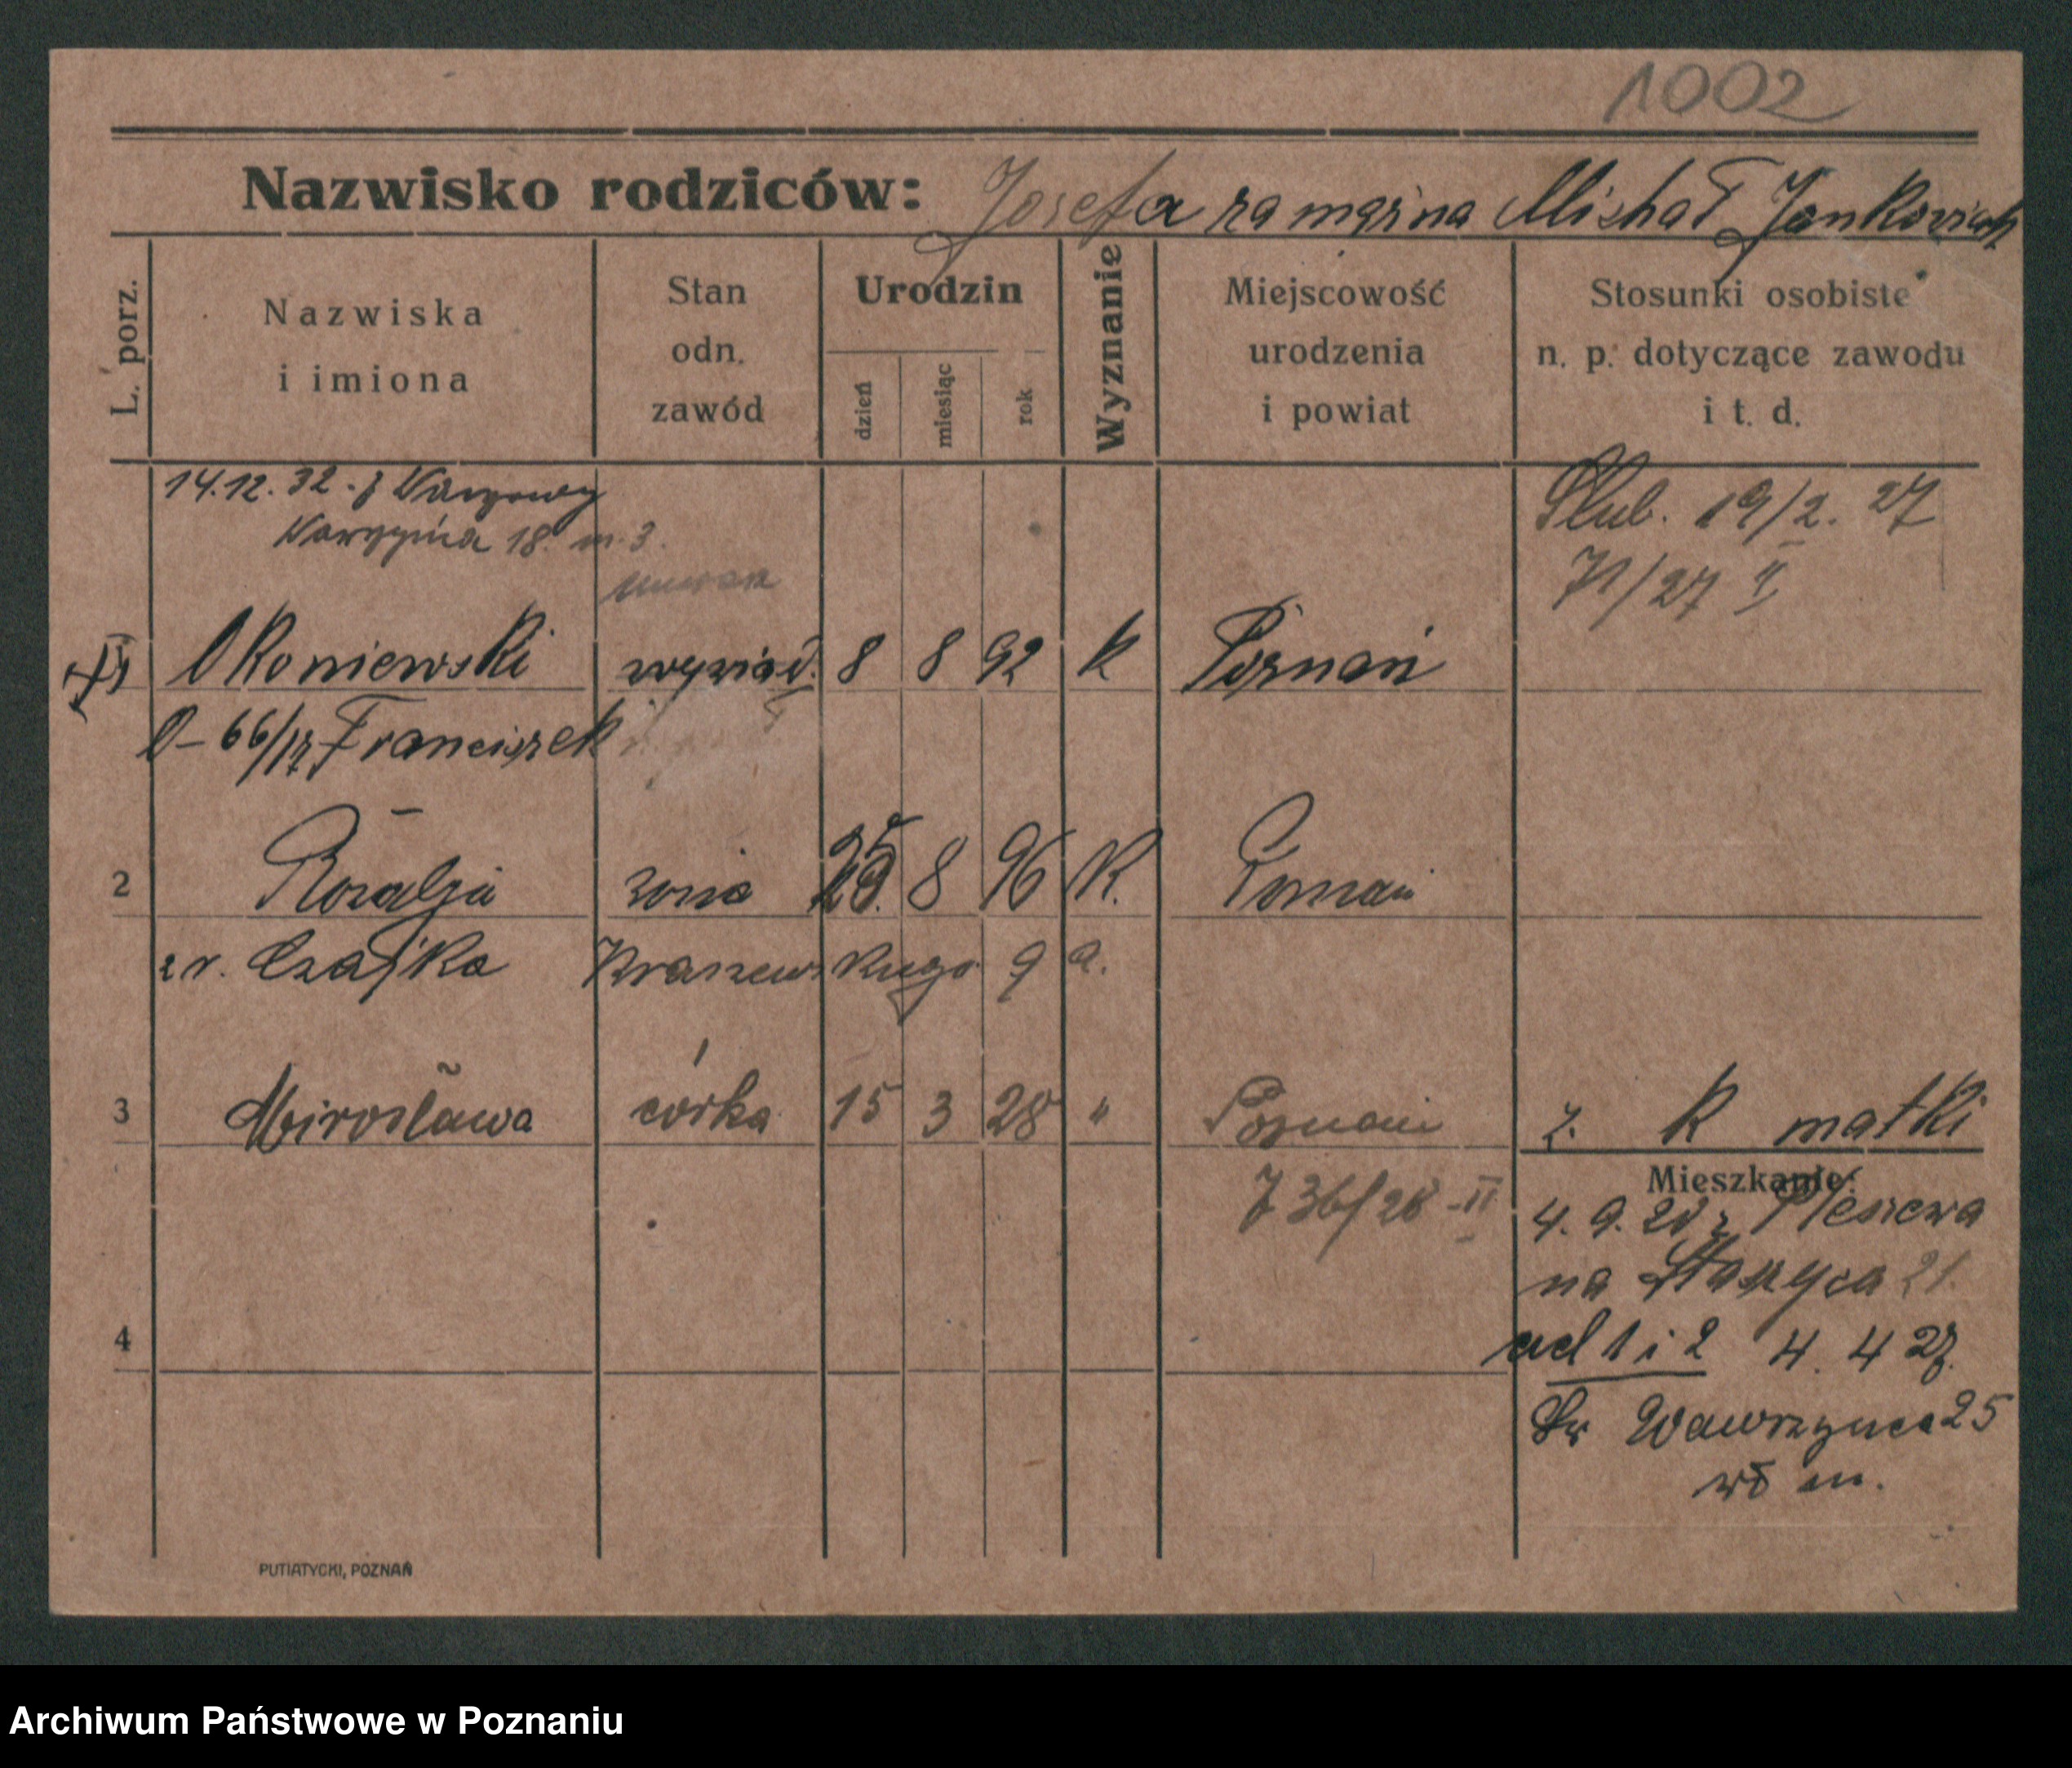 1002
Nazwisko rodziców: Josefa zamężna Michał Jankowiak
L. porz.
Nazwiska
i imiona
Stan
odn.
zawód
Urodzin
dzień
miesiąc
rok
Wyznanie
Miejscowość
urodzenia
i powiat
Stosunki osobiste
n. p. dotyczące zawodu
i t. d.
14.12.32 - z
18 m. 3.
Ślub. 19/2. 27
71/27 II
Okoniewski wywiad. 8 8 92 k Poznań
0-66/12 Franciszek
2 Rozalja żona 25. 8 96 K. Poznań
z r. Czajka Kraszewskiego 9 a.
3 Mirosława córka 15 3 28 " Poznań z. K matki
736/28 - II
Mieszkanie:
4. 9. 20 z Pleszewa
na Staszyca 21.
4
ad 1 i 2 4. 4 27.
Św Wawrzyńca 25
wł m.
PUTIATYCKI, POZNAŃ
Archiwum Państwowe w Poznaniu